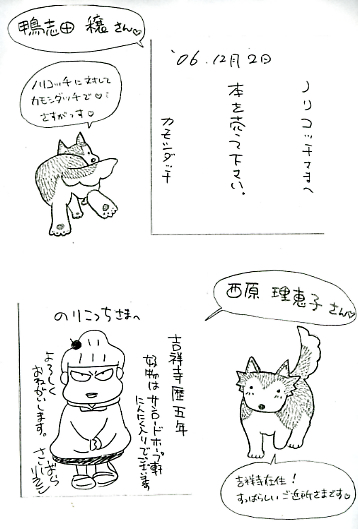 鴨志田 穣さん♡
'06.12月2日
ノリコッチさまへ
本を売って下さい。
カモシダッチ
ノリコッチに対して
カモシダッチで♡
さすがっす♡
西原 理恵子さん♡
のりこっちさまへ
吉祥寺歴五年
好物はサンロードホープ軒
にんにく入りでございます
よろしく
おねがいします。
さいばら
吉祥寺在住!
すっばらしいご近所さまです♡